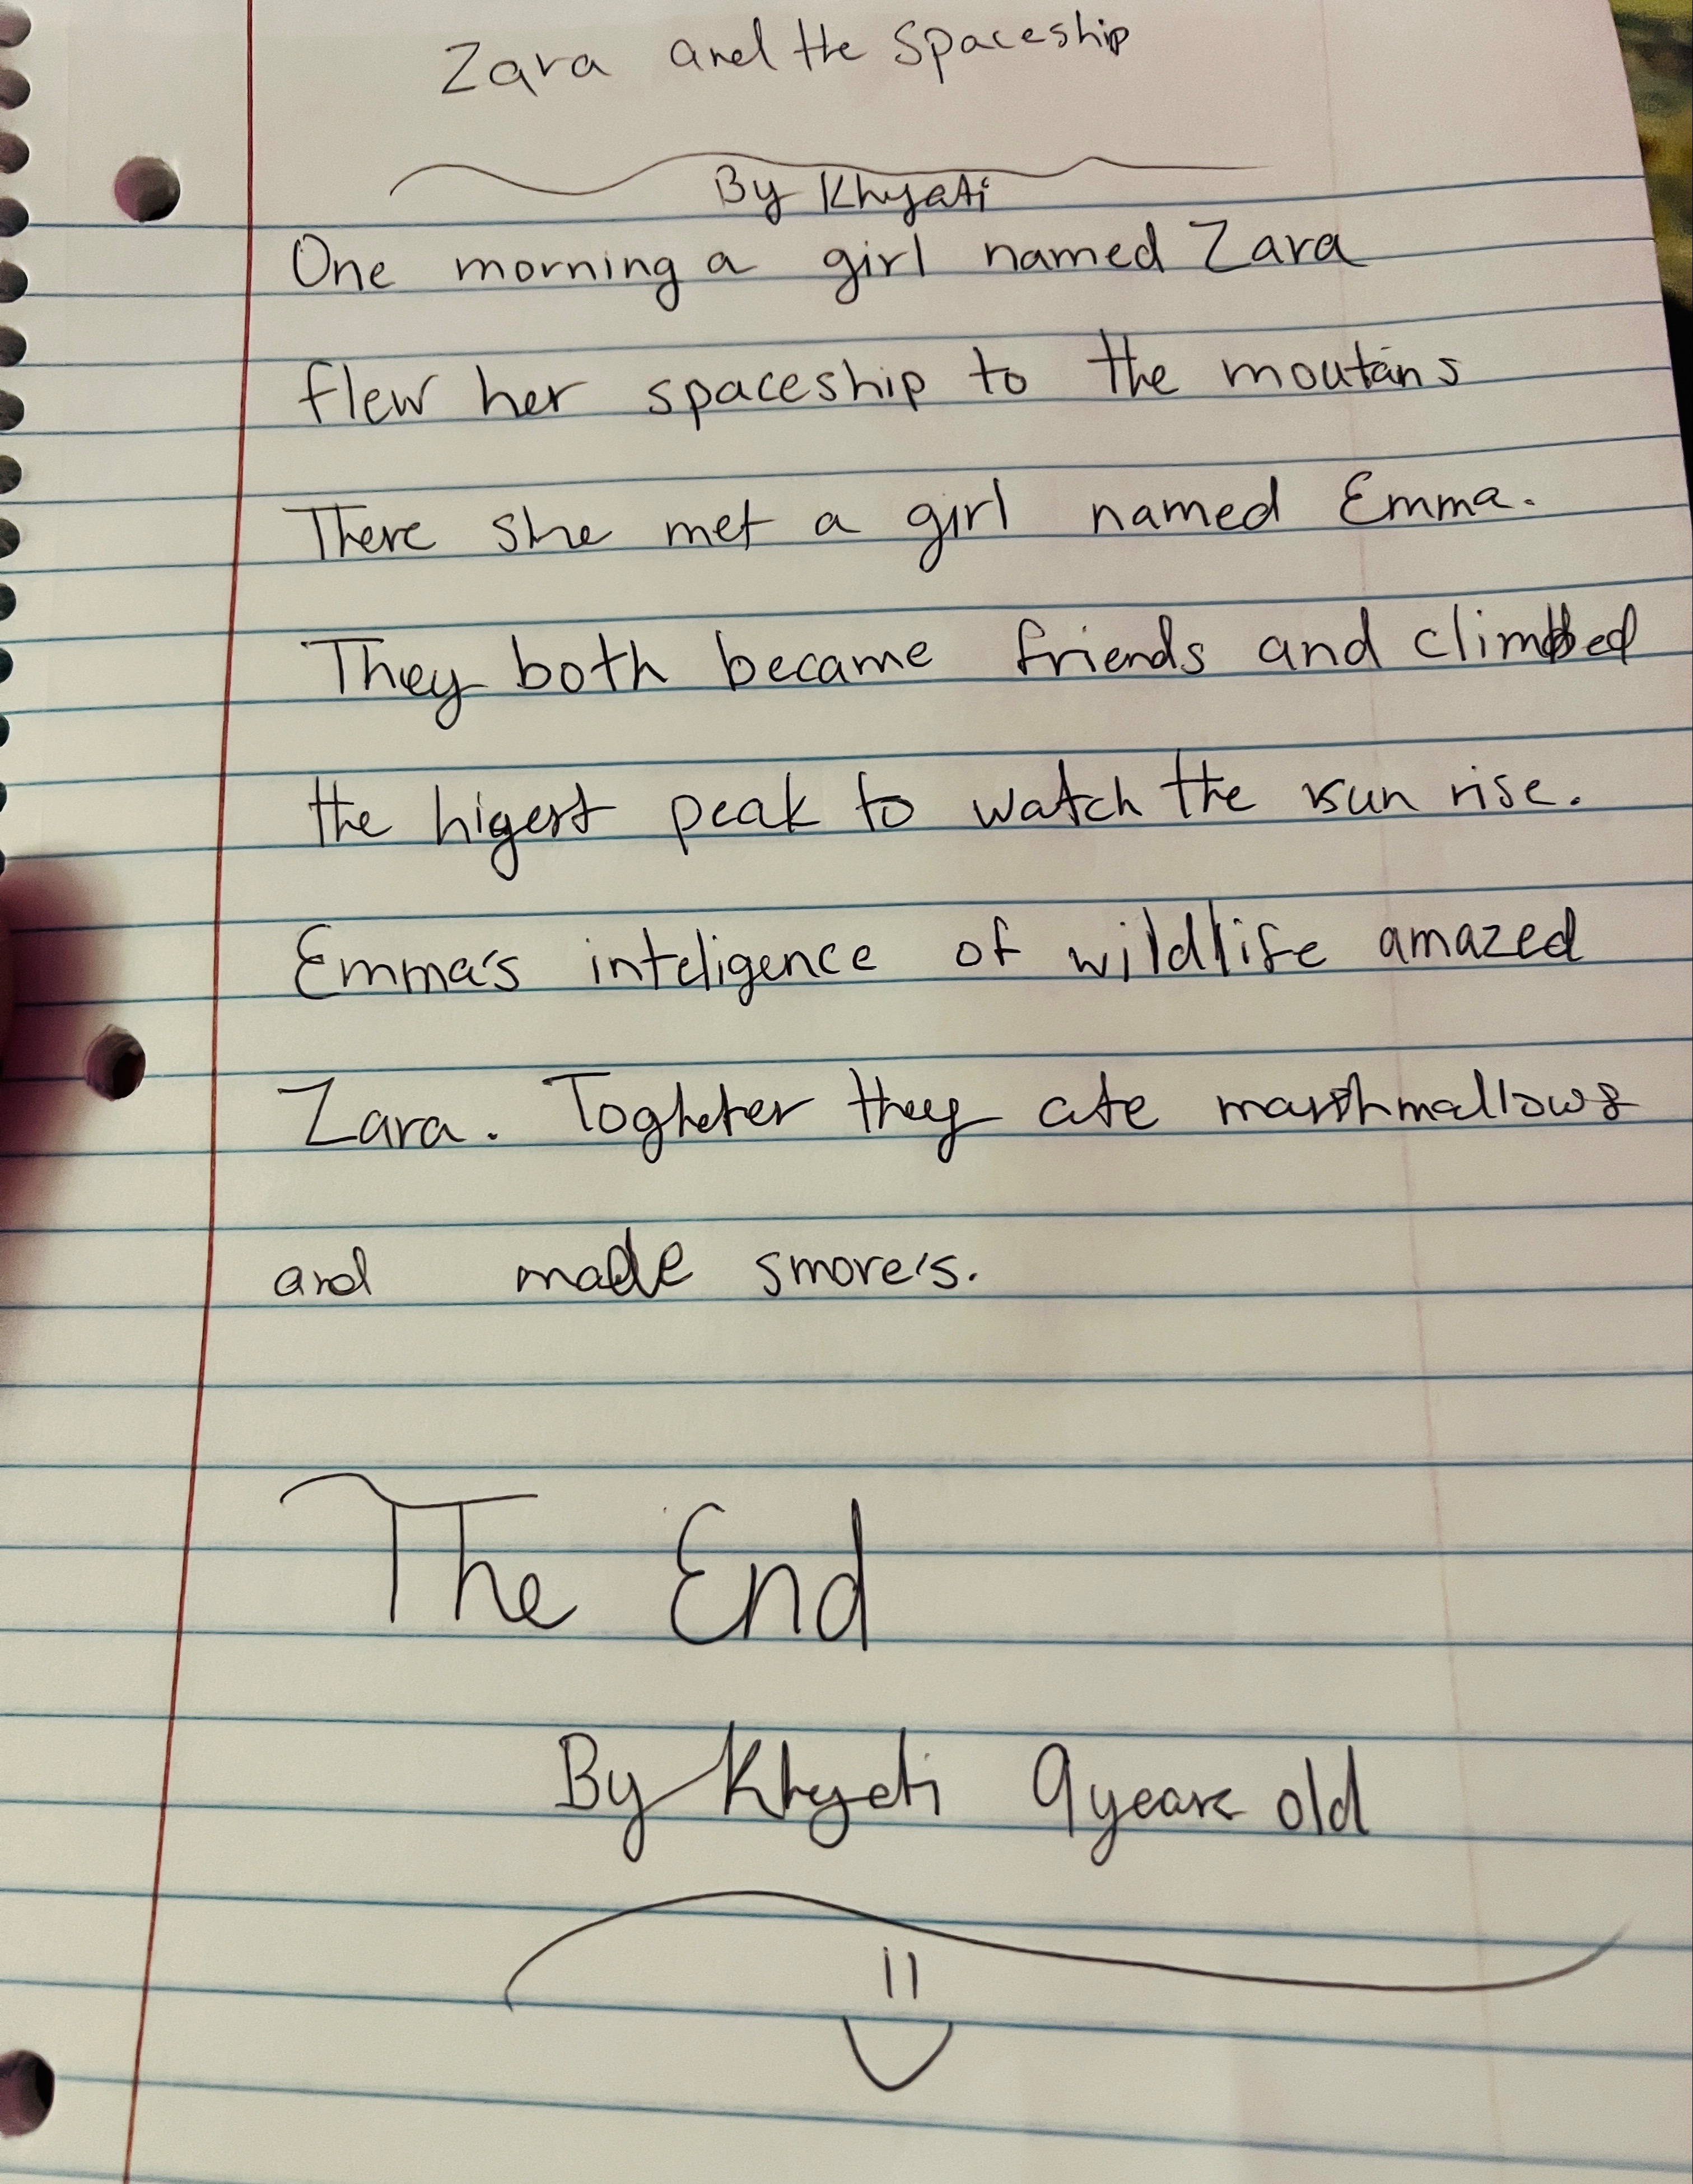 Zara and the Spaceship
By Khyati
One morning a girl named Zara
flew her spaceship to the moutains
There she met a girl named Emma.
They both became friends and climbed
the higest peak to watch the sun rise.
Emma's inteligence of wildlife amazed
Zara. Togheter they ate marshmallows
and made smore's.
The End
By Khyati 9 years old